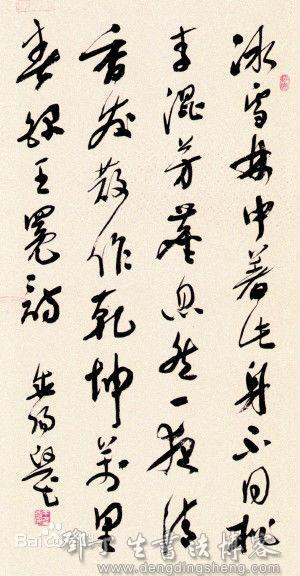 冰雪林中著此身不同桃
李混芳塵忽然一夜清
香發散作乾坤萬里
春 錄王冕詩
Bai百科
鄧丁生書法博客
www.dengdingsheng.com